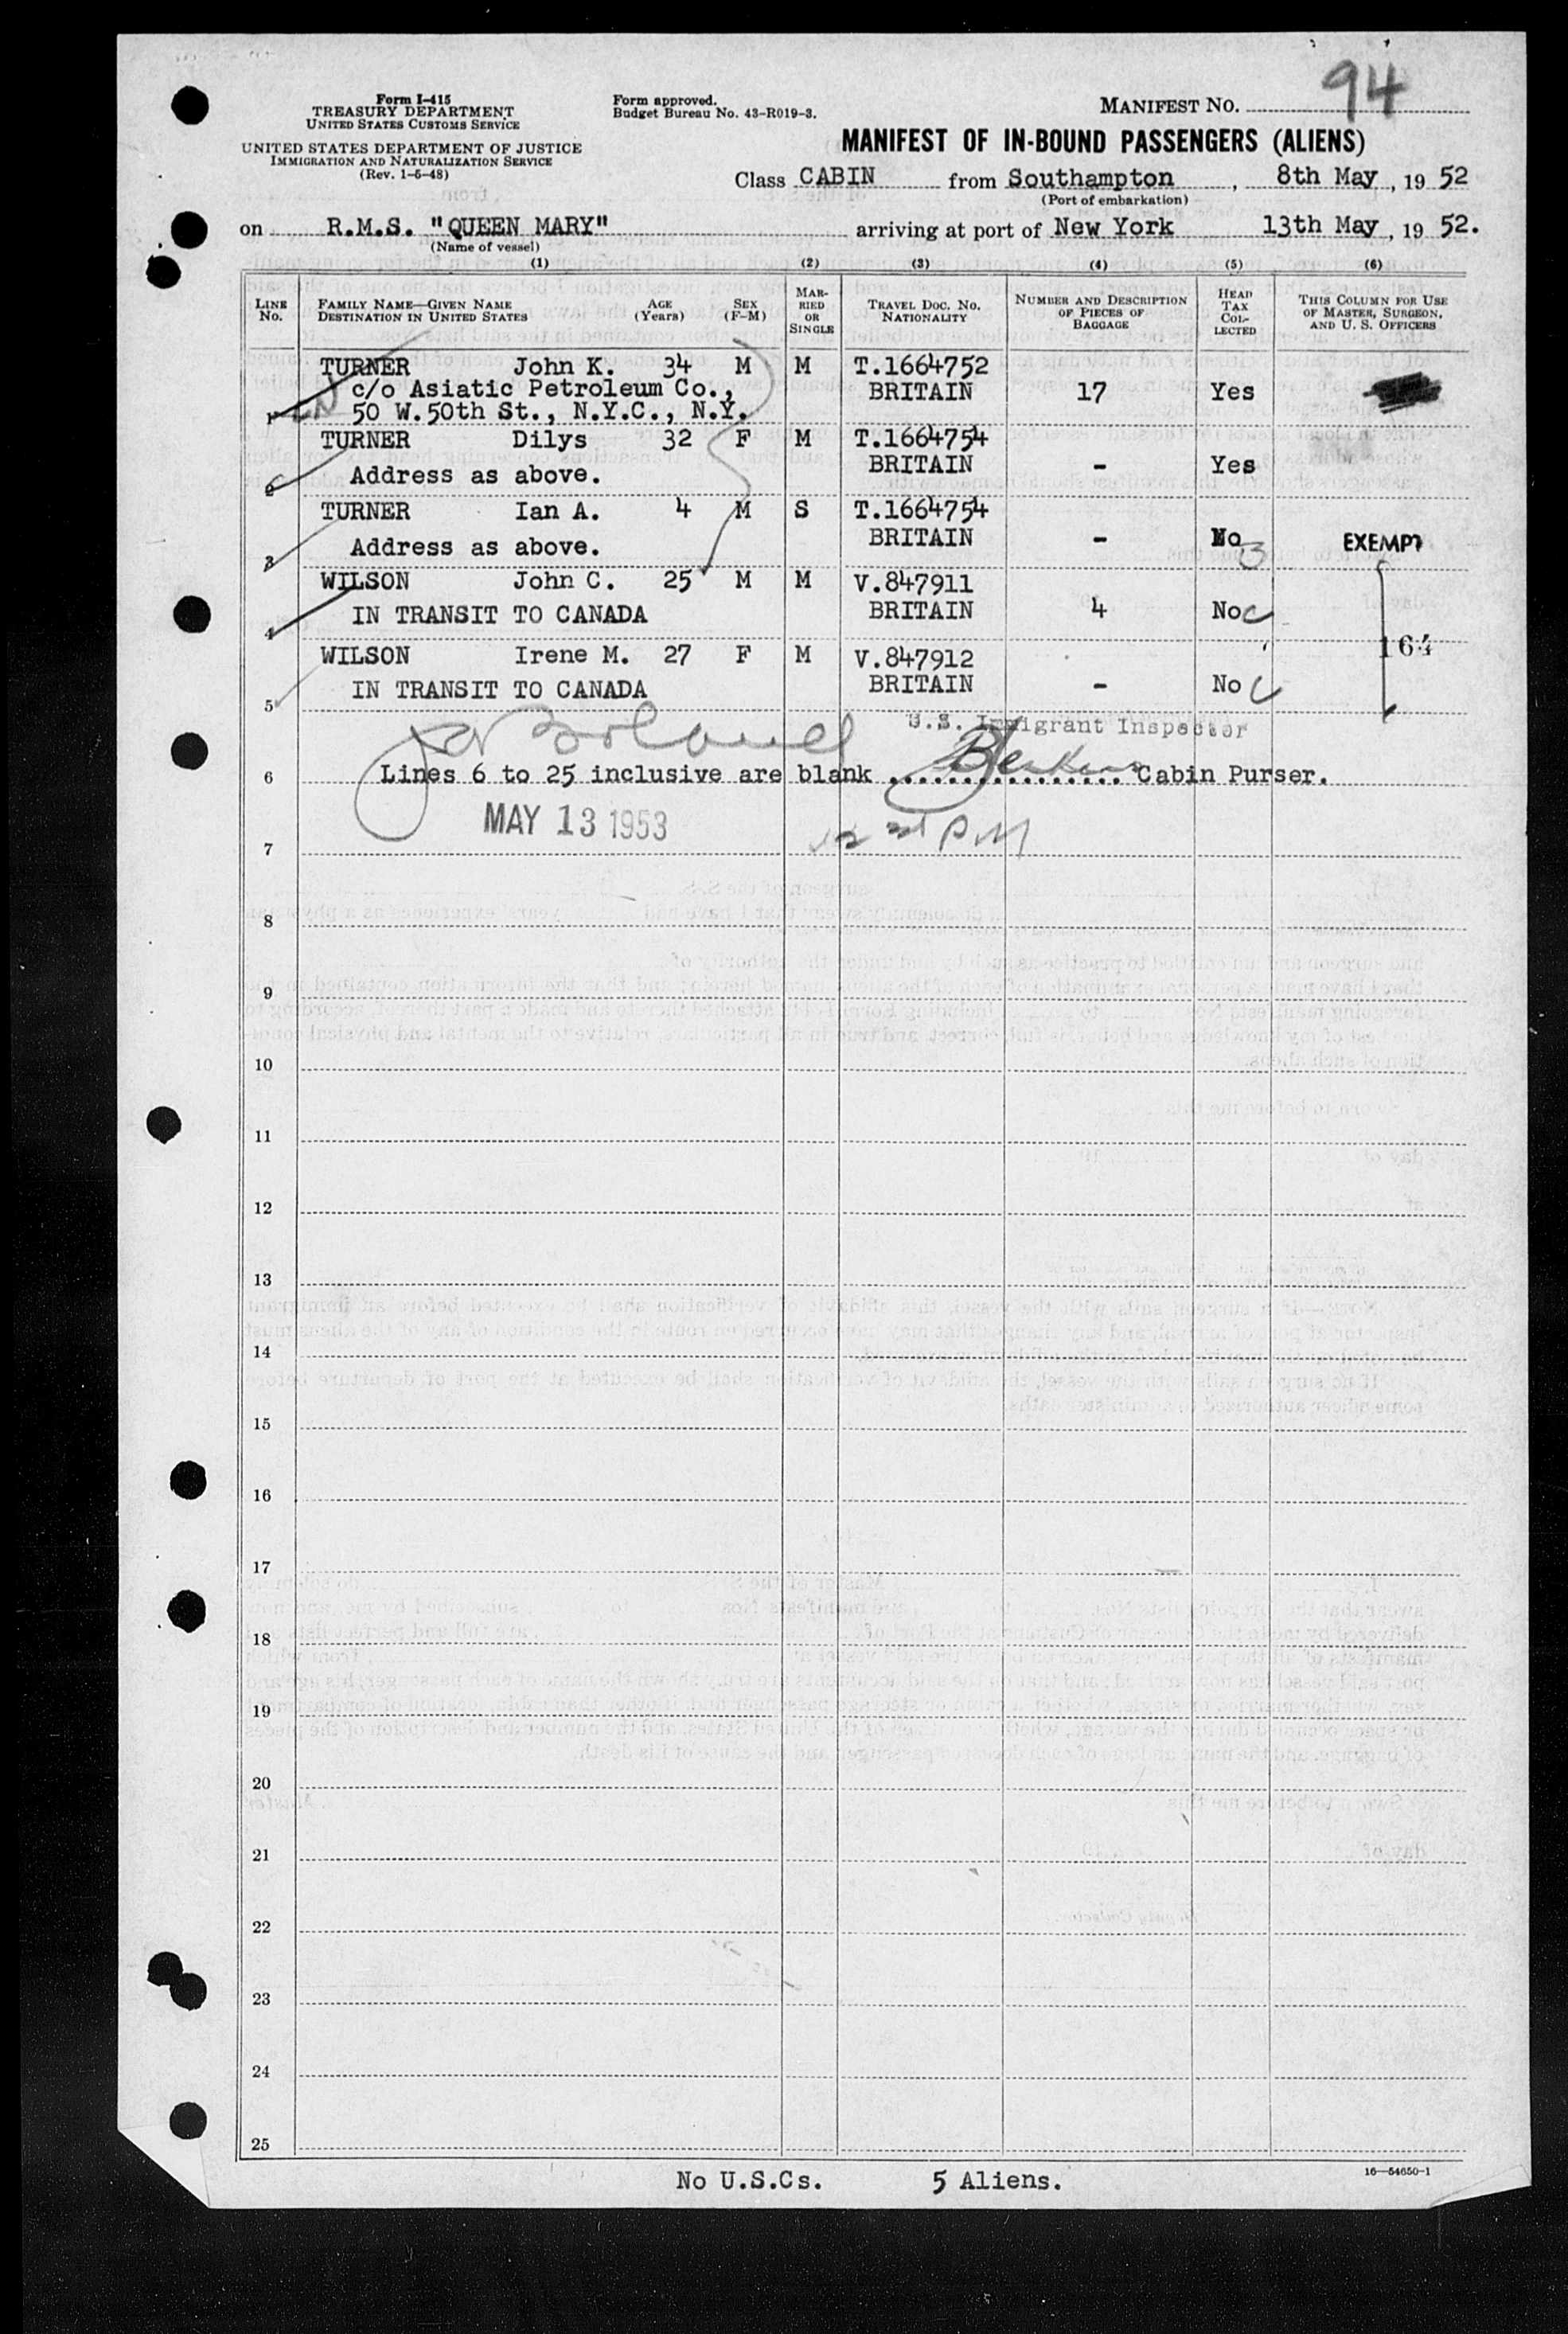 94
Form I-415
TREASURY DEPARTMENT
UNITED STATES CUSTOMS SERVICE
UNITED STATES DEPARTMENT OF JUSTICE
IMMIGRATION AND NATURALIZATION SERVICE
(Rev. 1-5-48)
Form approved.
Budget Bureau No. 43-R019-3.
MANIFEST NO.
MANIFEST OF IN-BOUND PASSENGERS (ALIENS)
Class CABIN from Southampton, 8th May, 19 52
(Port of embarkation)
on R.M.S. "QUEEN MARY" arriving at port of New York 13th May, 19 52.
(Name of vessel)
(1) (2) (3) (4) (5) (6)
LINE No. FAMILY NAME—GIVEN NAME DESTINATION IN UNITED STATES AGE (Years) SEX (F-M) MARRIED OR SINGLE TRAVEL DOC. NO. NATIONALITY NUMBER AND DESCRIPTION OF PIECES OF BAGGAGE HEAD TAX COLLECTED THIS COLUMN FOR USE OF MASTER, SURGEON, AND U. S. OFFICERS
TURNER John K. 34 M M T.1664752
c/o Asiatic Petroleum Co., BRITAIN 17 Yes
1 50 W.50th St., N.Y.C., N.Y.
TURNER Dilys 32 F M T.1664754
2 Address as above. BRITAIN - Yes
TURNER Ian A. 4 M S T.1664754
3 Address as above. BRITAIN - No EXEMPT
WILSON John C. 25 M M V.847911
4 IN TRANSIT TO CANADA BRITAIN 4 No c
164
WILSON Irene M. 27 F M V.847912
5 IN TRANSIT TO CANADA BRITAIN - No c
U.S. Immigrant Inspector
6 Lines 6 to 25 inclusive are blank ................ Cabin Purser.
MAY 13 1953
PM
7
8
9
10
11
12
13
14
15
16
17
18
19
20
21
22
23
24
25
No U.S.Cs. 5 Aliens.
16—54650-1